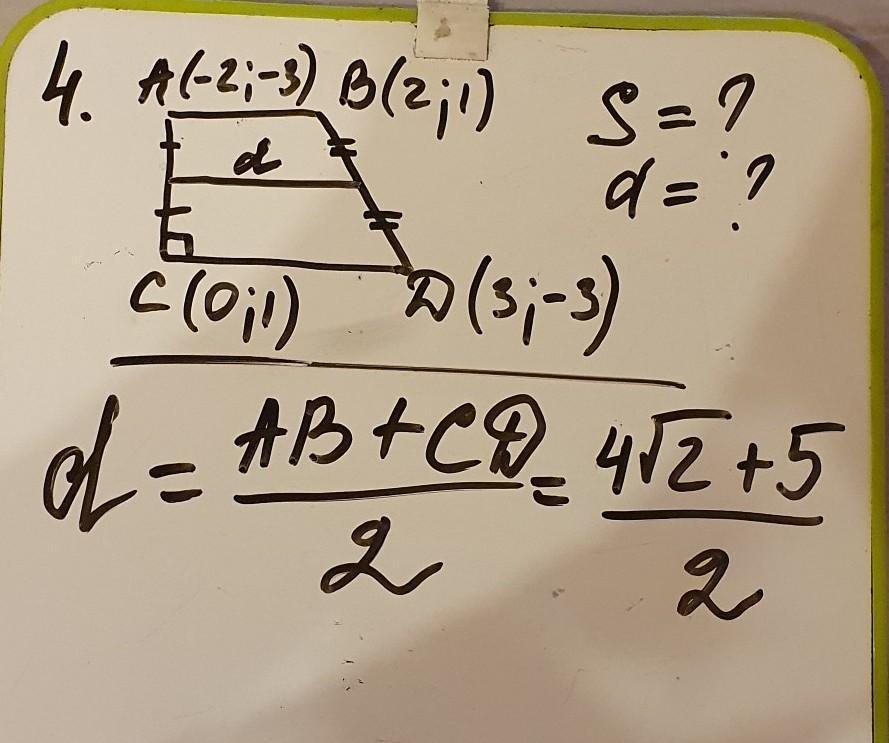 4. A(-2;-3) B(2;1) S=?
d d=?
C(0;1) D(3;-3)
d = AB+CD/2 = 4√2+5/2